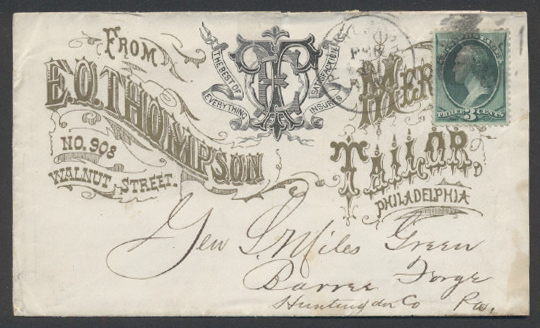 FROM
E.O. THOMPSON
NO. 908
WALNUT STREET.
THE BEST OF
EVERYTHING
SATISFACTION
INSURED
MER
TAILOR,
PHILADELPHIA
THREE 3 CENTS
Gen S. Miles Green
Barree Forge
Huntingdon Co Pa.